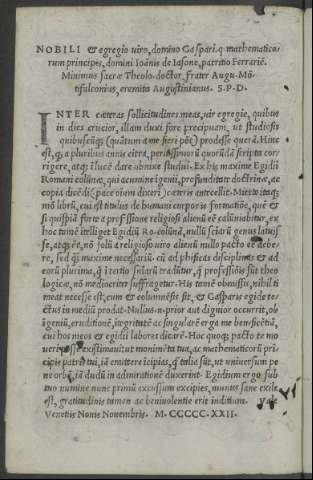 NOBILI & egregio uiro, domino Gaspari. q mathematico/
rum principes, domini Ioānis de Iasone, patritio Ferrariē.
Minimus sacræ Theolo. doctor, frater Augu. Mō
tifulconius, eremita Augustinianus. S. P. D.
INTER cæteras sollicitudines meas, uir egregie, quibus
in dies crucior, illam duxi fore precipuam, ut studiosis
quibuscūqȝ (quātum a me fieri pōt) prodesse querā. Hinc
est, q, a pluribus annis citra, peritissimorū quorūdā scripta cor
rigere, atqȝ ī lucē dare obnixe studui. Ex his maxime Egidii
Romani colūne, qui acumine igenii, profunditate doctrinæ, ac
copia dicēdi (pace oīum dixeri) cæteris antecellit. Mitto itaqȝ
mō librū, cui est titulus de humani corporis formatiōe, quē &
si quispiā forte a professione religiosi alienū eē calūniabitur, ex
hoc tamē itelliget Egidiū Ro. colūnā, nullū sciarū genus latuis
se, atqȝ rē, nō solū a religioso uiro alienū nullo pacto eē debe/
re, sed q maxime necessariū. cū ad phisicas disciplinas & ad
eorū plurima, q ī tertio sniarū tradūtur, q professiōis sūt theo
logicæ, nō mediocriter suffragetur. His tamē obmissis, nihil ti
meat necesse est, cum & columnēsis sit, & Gasparis egide te/
ctus in mediū prodat. Nullus. n. prior aut dignior occurrit, ob
īgeniū, eruditionē, īregritatē ac singularē erga me beneficētiā,
cui hos meos & egidii labores dicarē. Hoc quoqȝ pacto te mo
ueri posse existimaui: ut monimēta tua, ac mathematicorū pri
cipis patris tui, iā emittere icipias, q talia sūt, ut uniuersum pe
ne orbē, iā dudū in admirationē duxerint. Egidium ergo sub
tuo numine nunc primū excussum excipies, munus sane exile
est, gratitudinis tamen ac beniuolentie erit inditium. Vale
Venetiis Nonis Nouembris. M. CCCCC. XXII.